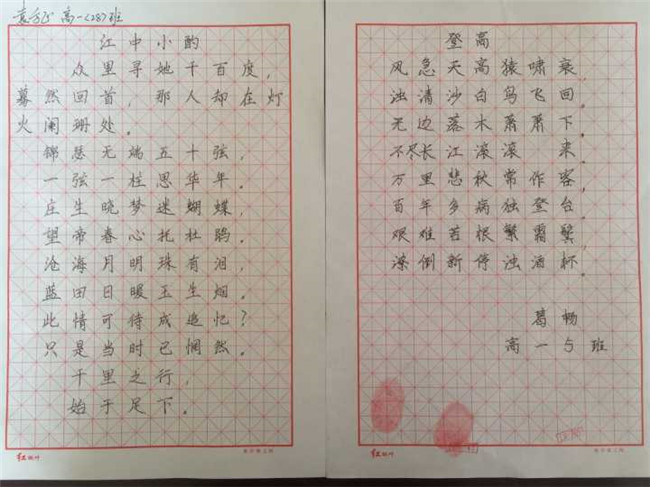 高一(28)班
江中小酌
众里寻她千百度,
蓦然回首,那人却在灯
火阑珊处。
锦瑟无端五十弦,
一弦一柱思华年。
庄生晓梦迷蝴蝶,
望帝春心托杜鹃。
沧海月明珠有泪,
蓝田日暖玉生烟。
此情可待成追忆?
只是当时已惘然。
千里之行,
始于足下。
登高
风急天高猿啸哀,
浊清沙白鸟飞回。
无边落木萧萧下,
不尽长江滚滚 来。
万里悲秋常作客,
百年多病独登台。
艰难苦根繁霜鬓,
潦倒新停浊酒杯。
葛畅
高一5班